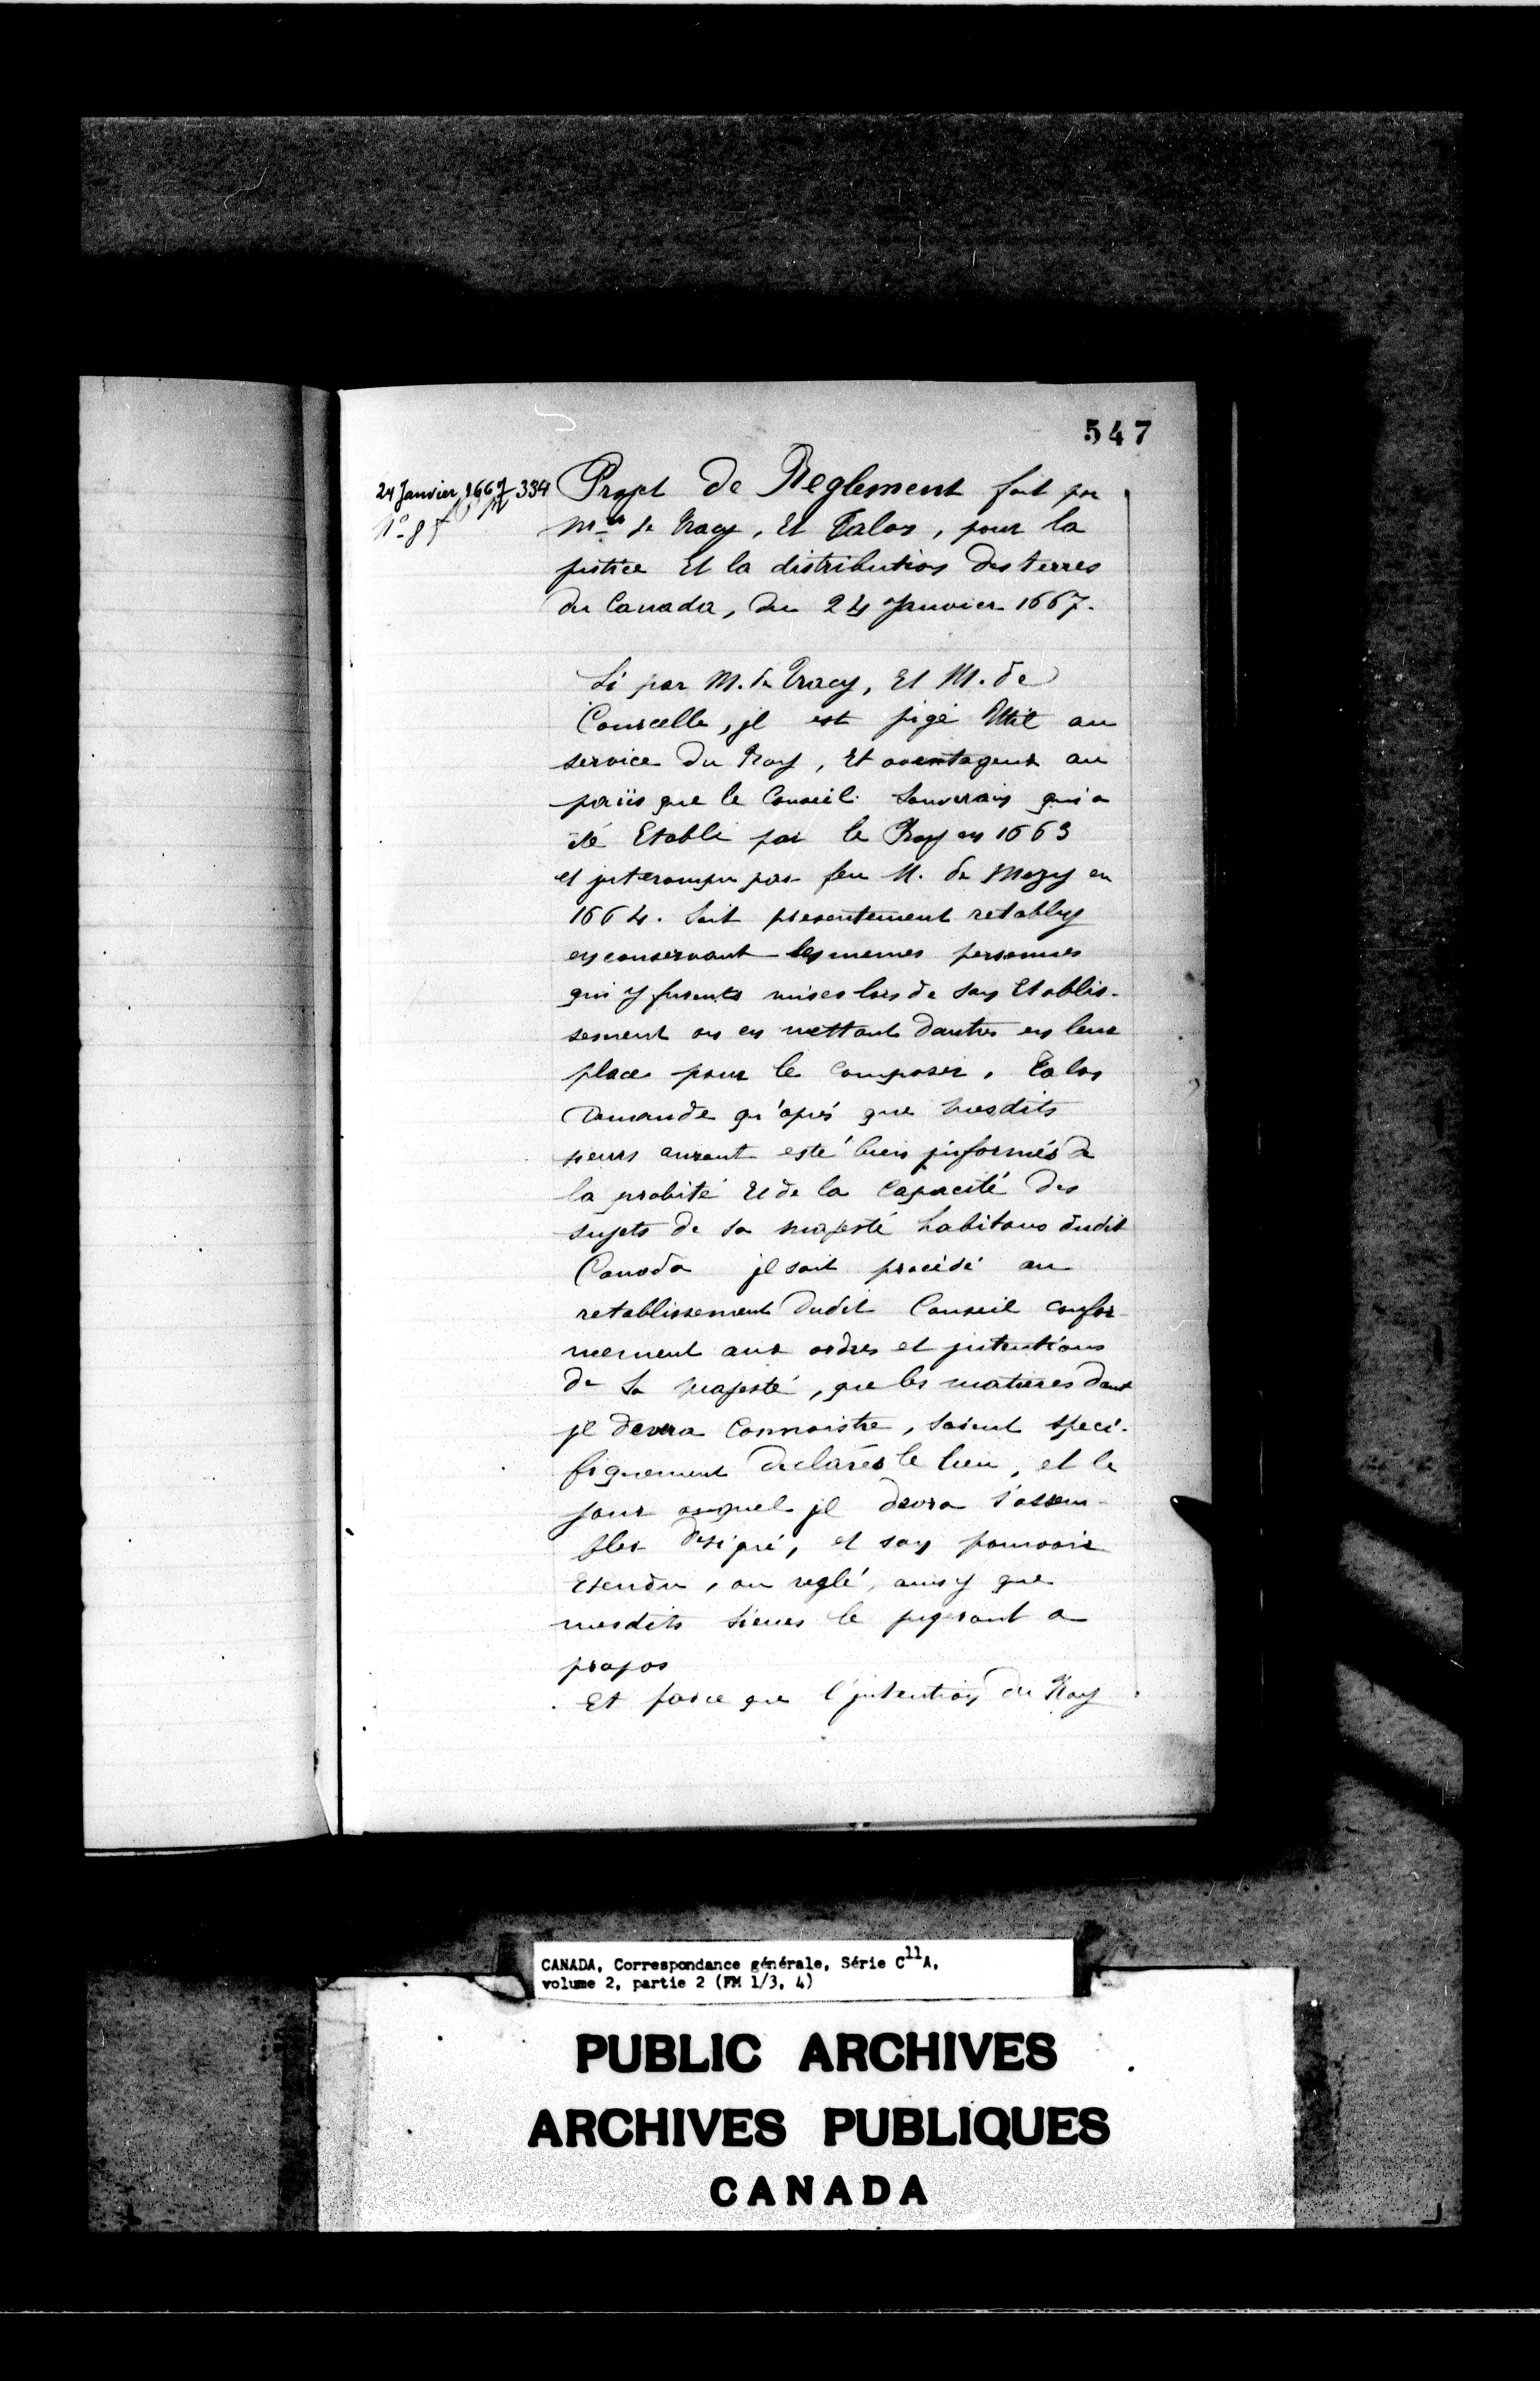 547
24 Janvier 1667 334
Projet de Reglement fait par
Mrs de Tracy, Et Talon, pour la
justice Et la distribution des terres
du Canada, du 24 Janvier 1667.
Si par M. de Tracy, Et M. de
Courcelle, jl est jugé Utile au
service du Roy, Et avantageux au
païis que le Conseil Souverain qui a
été Etabli par le Roy en 1663
et jnterompu par feu M. de Mezy en
1664. Soit presentement retably
en conservant les memes personnes
qui y furents mises lors de son Etablis-
sement ou en mettant dautres en leur
place pour le Composer, Talon
demande qu'aprés que mesdits
sieurs auront esté bien jnformés de
la probité Et de la Capacité des
sujets de Sa majesté habitans dudit
Canada jl soit procédé au
retablissement dudit Conseil confor-
mement aux ordres et jntentions
de Sa Majesté, que les matieres dont
jl devra Connoistre, soient speci-
fiquement declarés le lieu, et le
jour auquel jl devra s'assem-
bler designé, et son pouvoir
Etendu, ou reglé, ainsy que
mesdits Sieurs le jugeront a
propos
Et parce que l'jntention du Roy
CANADA, Correspondance générale, Série C11A,
volume 2, partie 2 (FM 1/3, 4)
PUBLIC ARCHIVES
ARCHIVES PUBLIQUES
CANADA